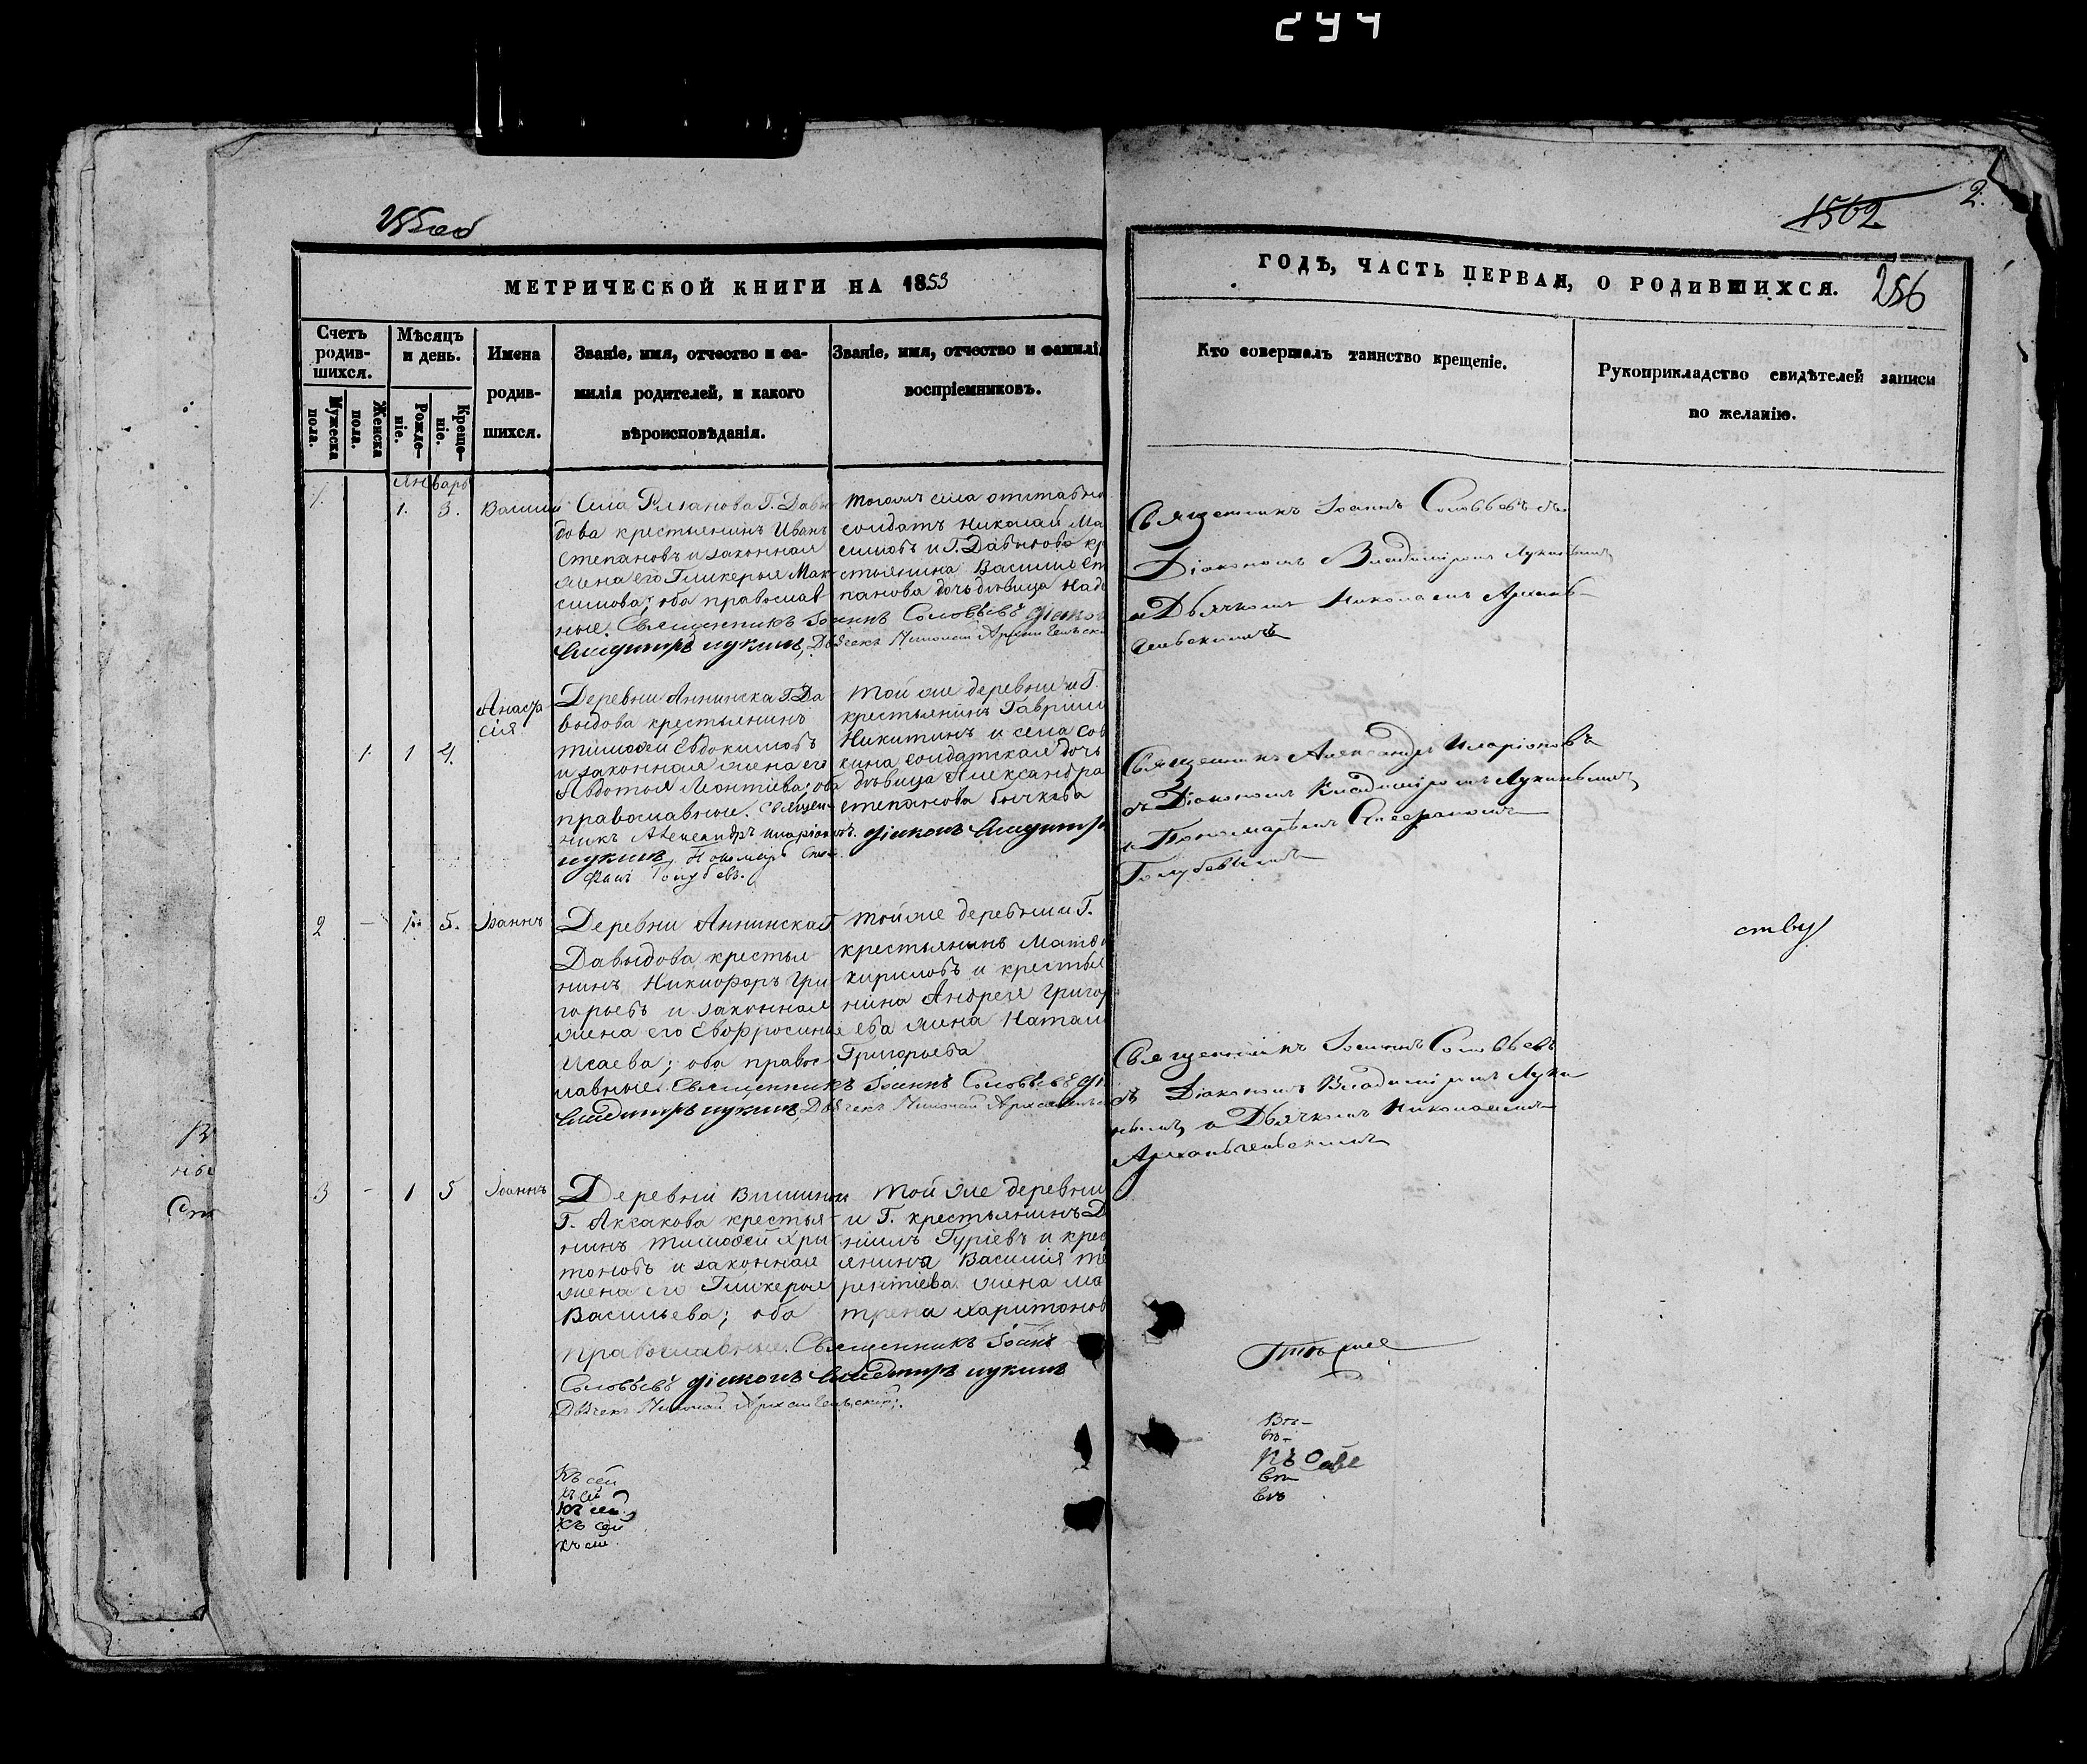 294
1502
2.
МЕТРИЧЕСКОЙ КНИГИ НА 1853
ГОДЪ, ЧАСТЬ ПЕРВАЯ, О РОДИВШИХСЯ.
256
Счетъ родив-шихся.
Мужеска пола.
Женска пола.
Мѣсяцъ и день.
Рожде-ніе.
Креще-ніе.
Имена
родив-
шихся.
Званіе, имя, отчество и фа-
милія родителей, и какого
вѣроисповѣданія.
Званіе, имя, отчество и фамилія
воспріемниковъ.
Кто совершалъ таинство крещеніе.
Рукоприкладство свидѣтелей записи
по желанію.
Январь
1. 1. 3. Василій
Села Рязанова Г. Давы
дова крестьянинъ Иванъ
Степановъ и законная
жена его Гликерья Мак-
симова; оба православ
ные. Священникъ Іоаннъ Соловьевъ Діакон
Владимиръ Лукинъ, Дьячекъ Николай Архангельск
тогожъ села отставно
солдатъ Николай Ма
симовъ и Г. Давыдова кр
стьянина Василія Ст
панова дочь дѣвица Над
Священникъ Іоаннъ Соловьевъ съ
Діакономъ Владиміромъ Лукинымъ
и Дьячкомъ Николаемъ Архан-
гельскимъ
1. 1 4. Анаста
сія
Деревни Аннинска Г. Да
выдова крестьянинъ
Тимоѳей Евдокимовъ
и законная жена его
Авдотья Леонтіева; оба
православные. Священ
никъ Александръ Иларіоновъ. Діаконъ Владимиръ
Лукинъ, Пономарь Сте
фанъ Голубевъ.
той же деревни и Г.
крестьянинъ Гавріил
Никитинъ и села Сов
кина солдатская дочь
дѣвица Александра
Степанова Бычкова
Священникъ Александръ Иларіоновъ
съ Діакономъ Владиміромъ Лукинымъ
и Пономаремъ Стефаномъ
Голубевымъ
2 - 1. 5. Іоаннъ
Деревни Аннинска Г.
Давыдова крестья
нинъ Никифоръ Гри
горьевъ и законная
жена его Евфросинья
Исаева; оба правос
лавные. Священникъ Іоаннъ Соловьевъ Ді
Владимиръ Лукинъ, Дьячекъ Николай Архангельс
той же деревни и Г.
крестьянинъ Матв
Кириловъ и крестья
нина Андрея Григор
ева жена Натал
Григорьева
ству
Священникъ Іоаннъ Соловьевъ
съ Діакономъ Владиміромъ Луки
нымъ и Дьячкомъ Николаемъ
Архангельскимъ
3 - 1 5 Іоаннъ
Г. Аксакова крестья-
нинъ Тимоѳей Хри
тоновъ и законная
жена его Гликерья
Васильева; оба
православные. Священникъ Іоаннъ
Соловьевъ Діаконъ Владимиръ Лукинъ
Дьячекъ Николай Архангельскій.
той же деревни
и Г. крестьянинъ Д
ніилъ Гуріевъ и крес
янина Василія Те
рентіева жена Ма
трена Харитонов
Къ сей
къ сей
Къ сей
Къ сей
къ сей